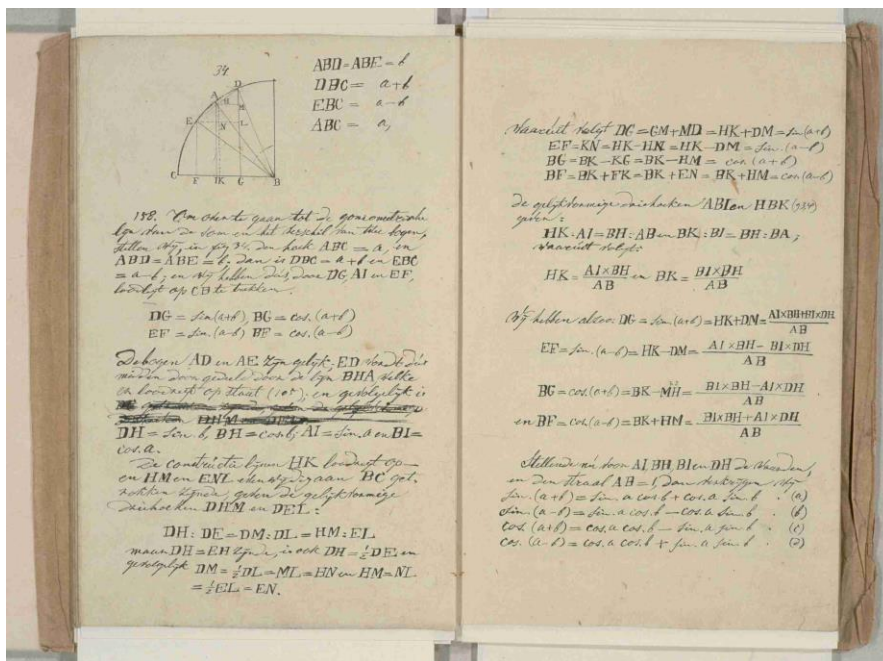 34
ABD = ABE = b
DBC = a+b
EBC = a-b
ABC = a,
A
D
E
H
M
N
L
C
F
I
K
G
B
188. Om over te gaan tot de goniometrische
lyn van de som en het verschil van twee bogen,
stellen wij, in fig 34. den hoek ABC = a, en
ABD = ABE = b. dan is DBC = a+b en EBC
= a-b; en wij hebben dus, door DG, AI en EF,
loodregt op CB te trekken.
DG = sin (a+b), BG = cos. (a+b)
EF = sin (a-b) BF = cos. (a-b)
De bogen AD en AE zijn gelyk; ED wordt dus
midden door gedeeld door de lyn BHA welke
er loodregt op staat (105), en gevolgelyk is
DH = sin. b, BH = cos. b; AI = sin. a en BI =
cos. a.
De constructie lynen HK loodregt op
en HM en ENL evenwydig aan BC get.
rokken zynde, geven de gelykvormige
driehoeken DHM en DEL:
DH : DE = DM : DL = HM : EL
maar DH = EH zynde, is ook DH = ½ DE en
gevolgelyk DM = ½ DL = ML = HN en HM = NL
= ½ EL = EN.
Waaruit volgt DG = GM + MD = HK + DM = sin (a+b)
EF = KN = HK - HN = HK - DM = sin. (a-b)
BG = BK - KG = BK - HM = cos. (a+b)
BF = BK + FK = BK + EN = BK + HM = cos (a-b)
De gelykvormige driehoeken ABI en HBK (934)
geven:
HK : AI = BH : AB en BK : BI = BH : BA;
waaruit volgt:
HK = AI × BH / AB en BK = BI × BH / AB
Wij hebben alsoo: DG = sin. (a+b) = HK + DM = AI × BH + BI × DH / AB
EF = sin. (a-b) = HK - DM = AI × BH - BI × DH / AB
BG = cos. (a+b) = BK - MH = BI × BH - AI × DH / AB
en BF = cos. (a-b) = BK + HM = BI × BH + AI × DH / AB
Stellende nu voor AI, BH, BI en DH de waarden,
en den straal AB = 1, dan verkrijgen wij
sin. (a+b) = sin. a cos. b + cos. a sin. b . (a)
sin. (a-b) = sin. a cos. b - cos. a sin. b . (b)
cos. (a+b) = cos. a cos. b - sin. a sin. b . (c)
cos. (a-b) = cos. a cos. b + sin. a sin. b . (d)